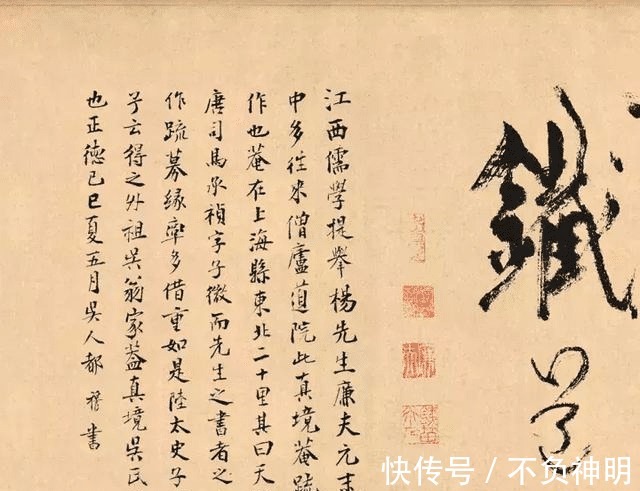 鐵
江西儒學提舉楊先生廉夫元
中多往来僧廬道院此真境菴疏
作也菴在上海縣東北二十里其曰天
唐司馬承禎字子微而先生之書者之
作疏募緣率多借重如是陸太史子
子云得之外祖吳翁家蓋真境吳氏
也正德己巳夏五月吳人都穆書
快传号 / 不负神明